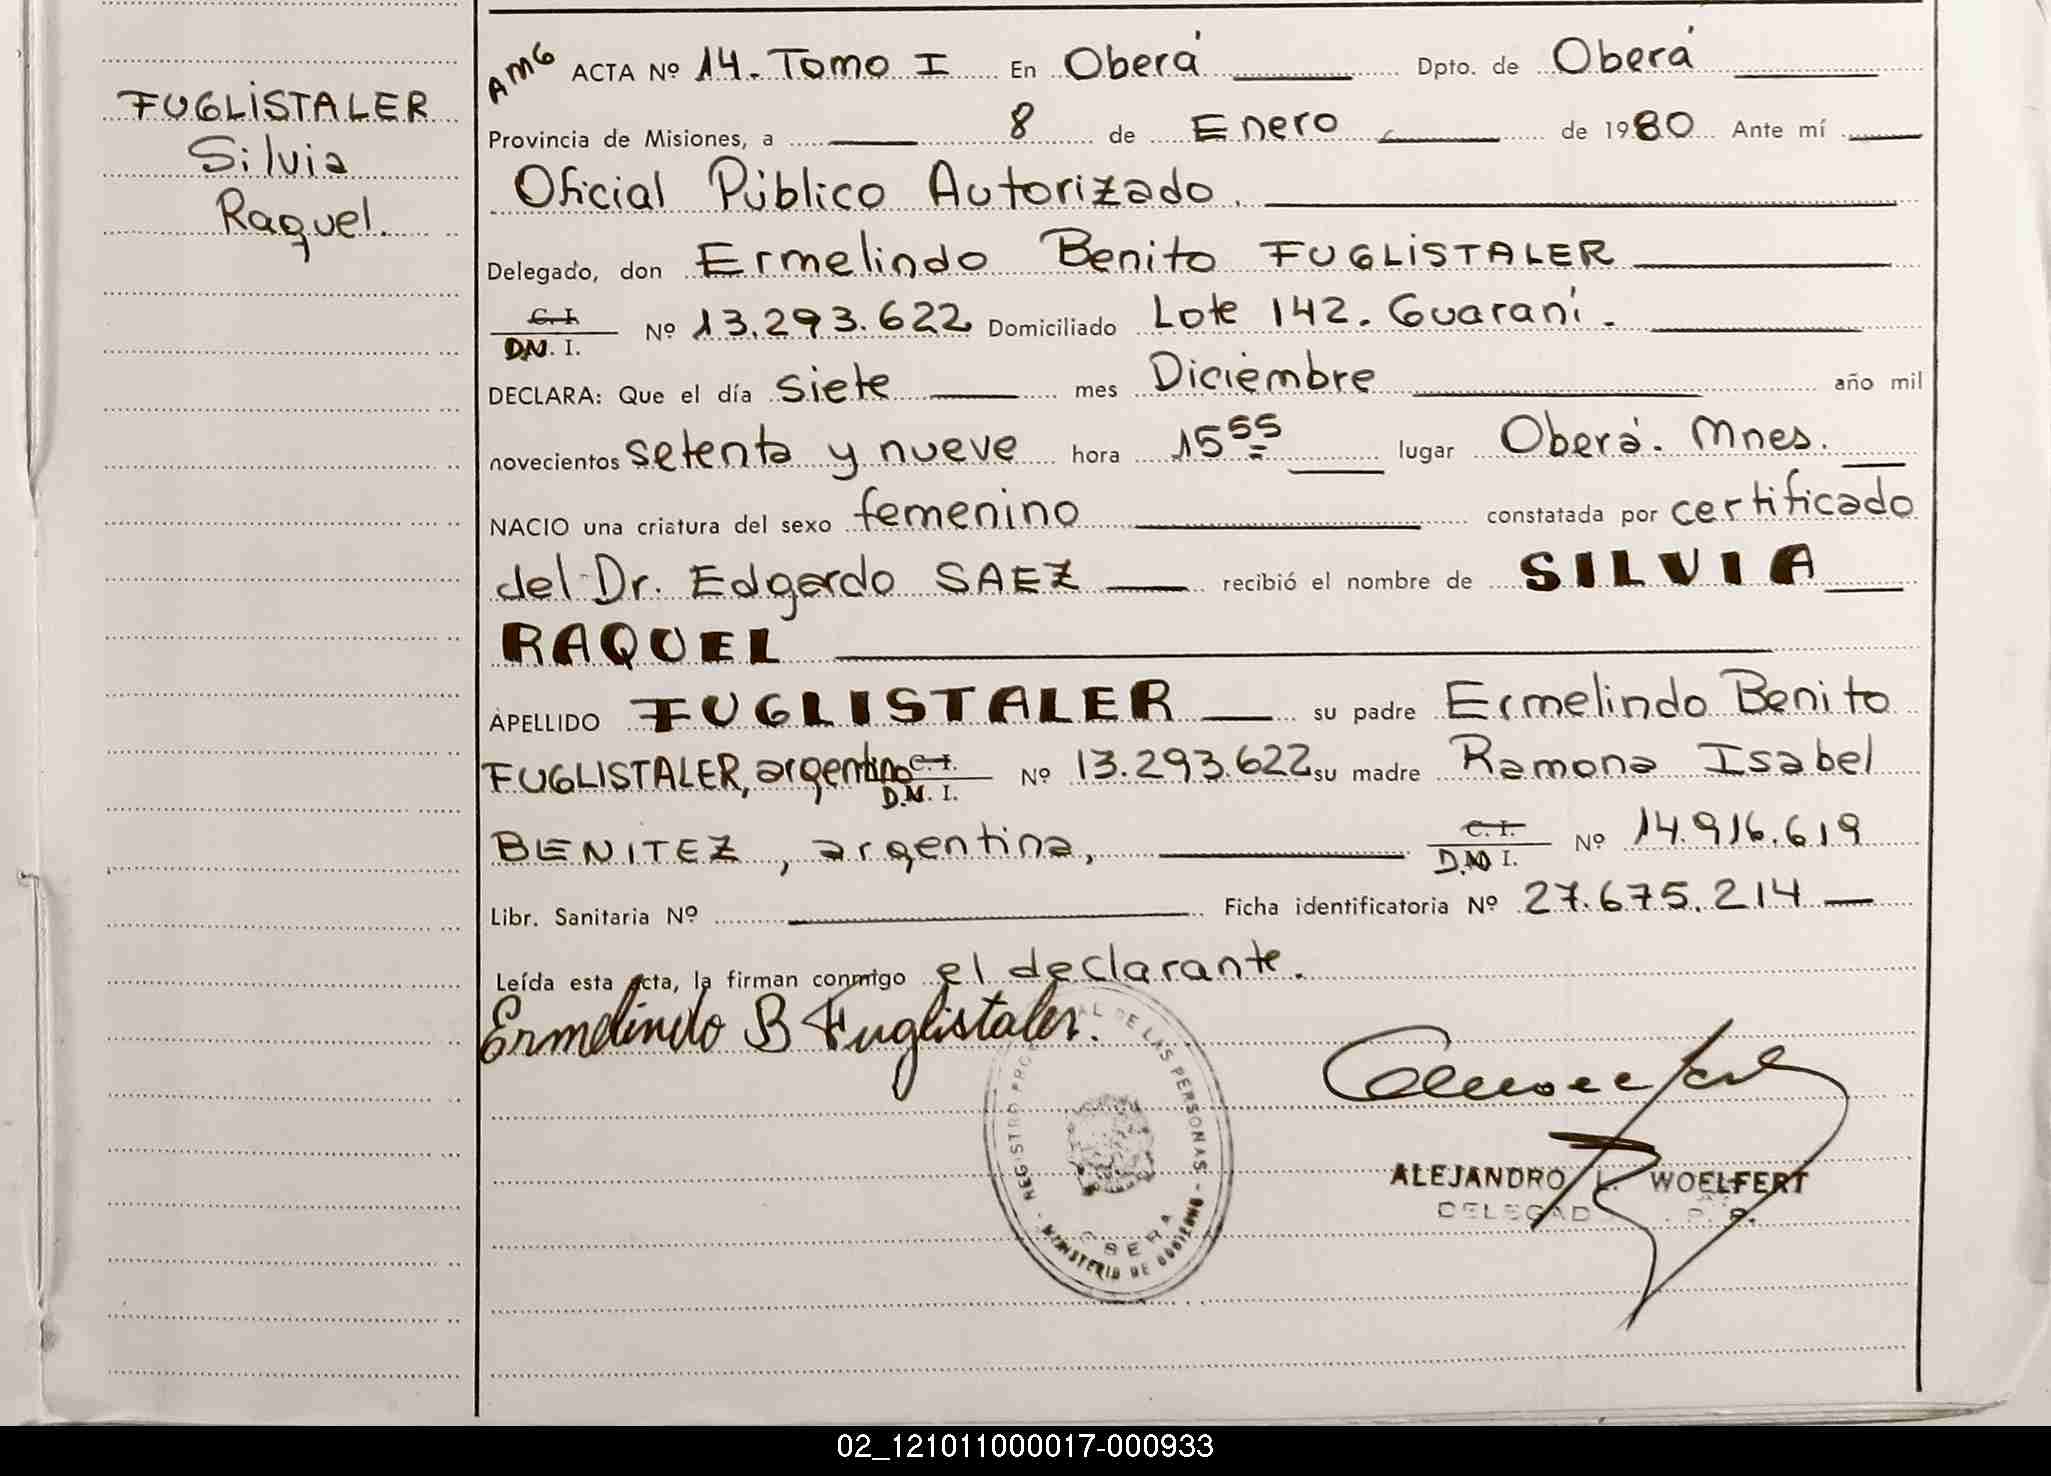 FUGLISTALER
Silvia
Raquel.
AMG ACTA Nº 14. Tomo I En Oberá Dpto. de Oberá
Provincia de Misiones, a 8 de Enero de 1980 Ante mí
Oficial Público Autorizado.
Delegado, don Ermelindo Benito FUGLISTALER
C. I. D.N.I. Nº 13.293.622 Domiciliado Lote 142. Guaraní.
DECLARA: Que el día siete mes Diciembre año mil
novecientos setenta y nueve hora 15 55 lugar Oberá. Mnes.
NACIO una criatura del sexo femenino constatada por certificado
del Dr. Edgardo SAEZ recibió el nombre de SILVIA
RAQUEL
APELLIDO FUGLISTALER su padre Ermelindo Benito
FUGLISTALER, argentino C. I. D.N.I. Nº 13.293.622 su madre Ramona Isabel
BENITEZ, argentina, C. I. D.N.I. Nº 14.916.619
Libr. Sanitaria Nº Ficha identificatoria Nº 27.675.214
Leída esta acta, la firman conmigo el declarante.
Ermelindo B Fuglistaler.
DE LAS PERSONAS - MINISTERIO DE GOBIERNO
OBERA
ALEJANDRO L. WOELFERT
DELEGAD
02_121011000017-000933